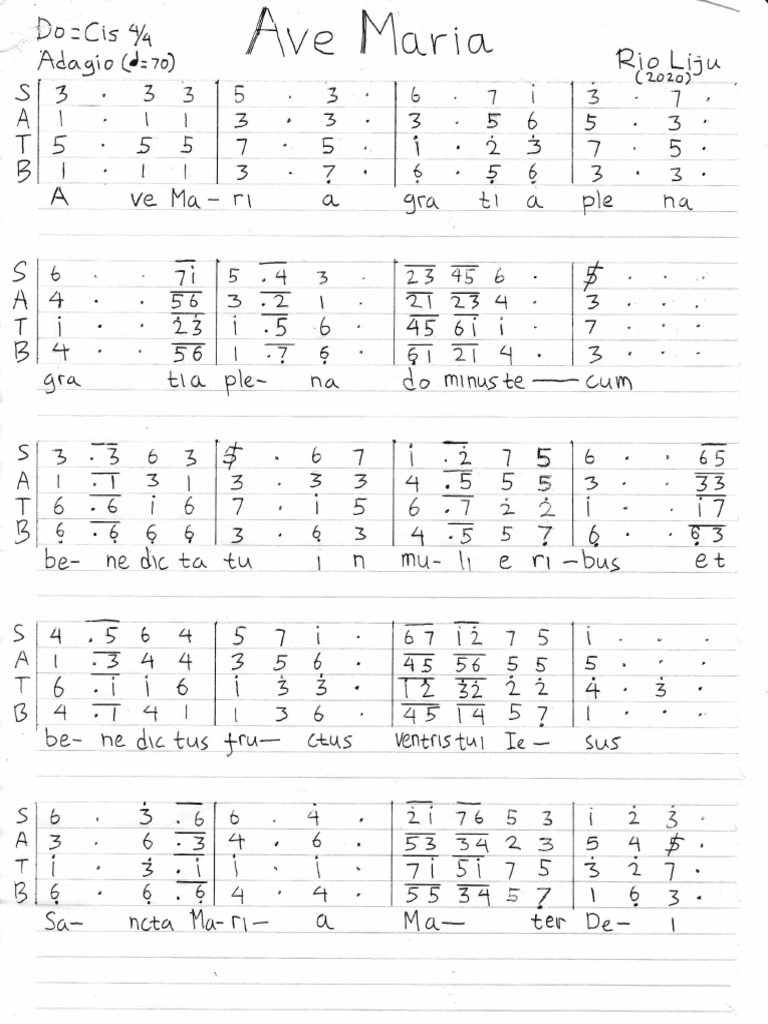 Ave Maria
Do=Cis 4/4
Adagio (d=70)
Rio Liju
(2020)
S | 3 . 3 3 | 5 . 3̇ . | 6 . 7 i | 3̇ . 7 .
A | 1 . 1 1 | 3 . 3 . | 3 . 5 6 | 5 . 3 .
T | 5 . 5 5 | 7 . 5 . | i . 2̇ 3̇ | 7 . 5 .
B | 1 . 1 1 | 3 . 7̣ . | 6̣ . 5̣ 6̣ | 3 . 3 .
A ve Ma - ri a gra ti a ple na
S | 6 . . 7i | 5 .4 3 . | 23 45 6 . | $ . . .
A | 4 . . 56 | 3 .2 1 . | 21 23 4 . | 3 . . .
T | i . . 2̇3̇ | i .5 6 . | 45 6i i . | 7 . . .
B | 4 . . 56 | 1 .7̣ 6̣ . | 6̣1 21 4 . | 3 . . .
gra tia ple- na do minus te — cum
S | 3 .3 6 3 | $ . 6 7 | i .2̇ 7 5 | 6 . . 65
A | 1 .1 3 1 | 3 . 3 3 | 4 .5 5 5 | 3 . . 33
T | 6 .6 i 6 | 7 . i 5 | 6 .7 2̇ 2̇ | i . . i7
B | 6̣ .6̣ 6̣ 6̣ | 3 . 6̣ 3 | 4 .5 5 7̣ | 6̣ . . 6̣3
be- ne dic ta tu i n mu- li e ri - bus et
S | 4 .5 6 4 | 5 7 i . | 67 i2̇ 7 5 | i . . .
A | 1 .3 4 4 | 3 5 6 . | 45 56 55 | 5 . . .
T | 6 .i i 6 | i 3̇ 3̇ . | i2̇ 3̇2̇ 2̇ 2̇ | 4̇ . 3̇ .
B | 4 .1 4 1 | 1 3 6 . | 45 14 5 7̣ | 1 . . .
be- ne dic tus fru— ctus ventris tui Ie - sus
S | 6 . 3̇ .6 | 6 . 4̇ . | 2̇i 76 5 3 | i 2̇ 3̇ .
A | 3 . 6 .3 | 4 . 6 . | 53 34 2 3 | 5 4 $ .
T | i . 3̇ .i | i . i . | 7i 5i 7 5 | 3̇ 2̇ 7 .
B | 6̣ . 6̣ .6̣ | 4 . 4 . | 55 34 5 7̣ | 1 6̣ 3 .
Sa- ncta Ma-ri- a Ma— ter De- i